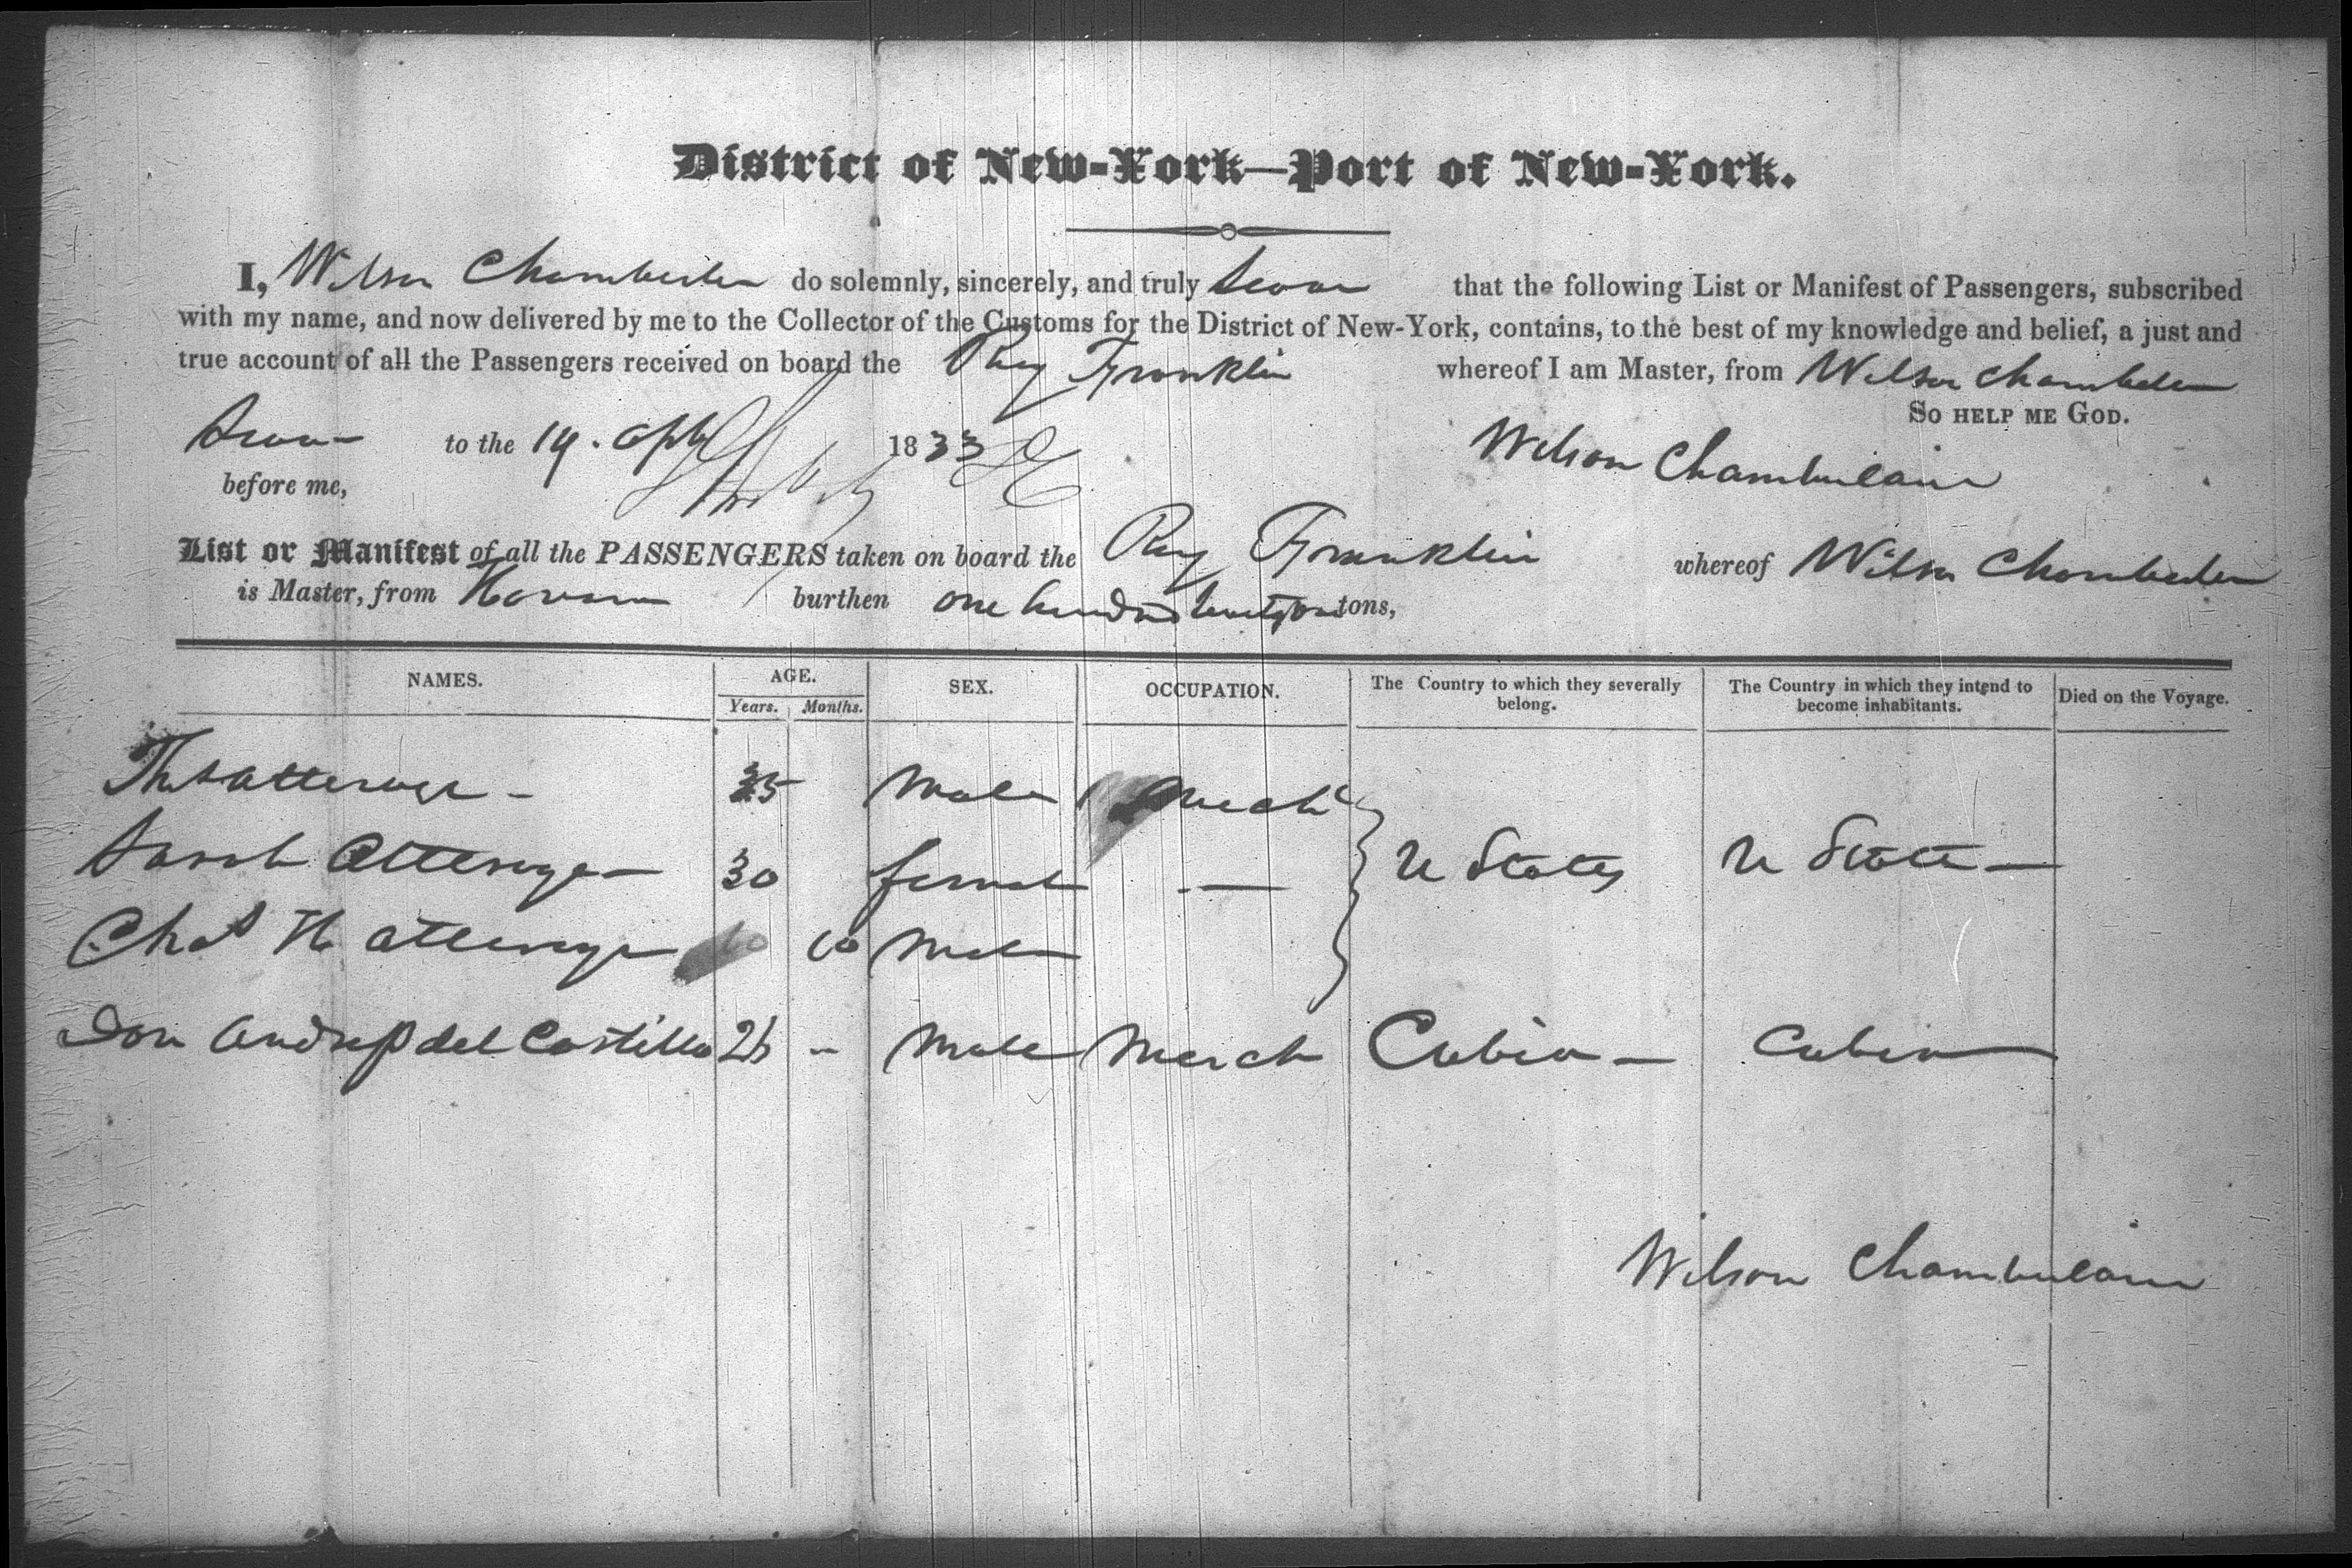 District of New-York—Port of New-York.
I, Wilson Chamberlin do solemnly, sincerely, and truly swear that the following List or Manifest of Passengers, subscribed
with my name, and now delivered by me to the Collector of the Customs for the District of New-York, contains, to the best of my knowledge and belief, a just and
true account of all the Passengers received on board the Franklin whereof I am Master, from Wilson Chamberlin
So help me God.
to the 19. 1833
Wilson Chamberlain
before me,
List or Manifest of all the PASSENGERS taken on board the Franklin whereof Wilson Chamberlin
is Master, from Havana burthen one hundred tons,
NAMES. AGE. Years. Months. SEX. OCCUPATION. The Country to which they severally belong. The Country in which they intend to become inhabitants. Died on the Voyage.
35 Male Merch
Sarah 30 female — U States U State—
Chas H 10 Male
Don del Castillo 26 - Male Merch Cuba — Cuba
Wilson Chamberlain